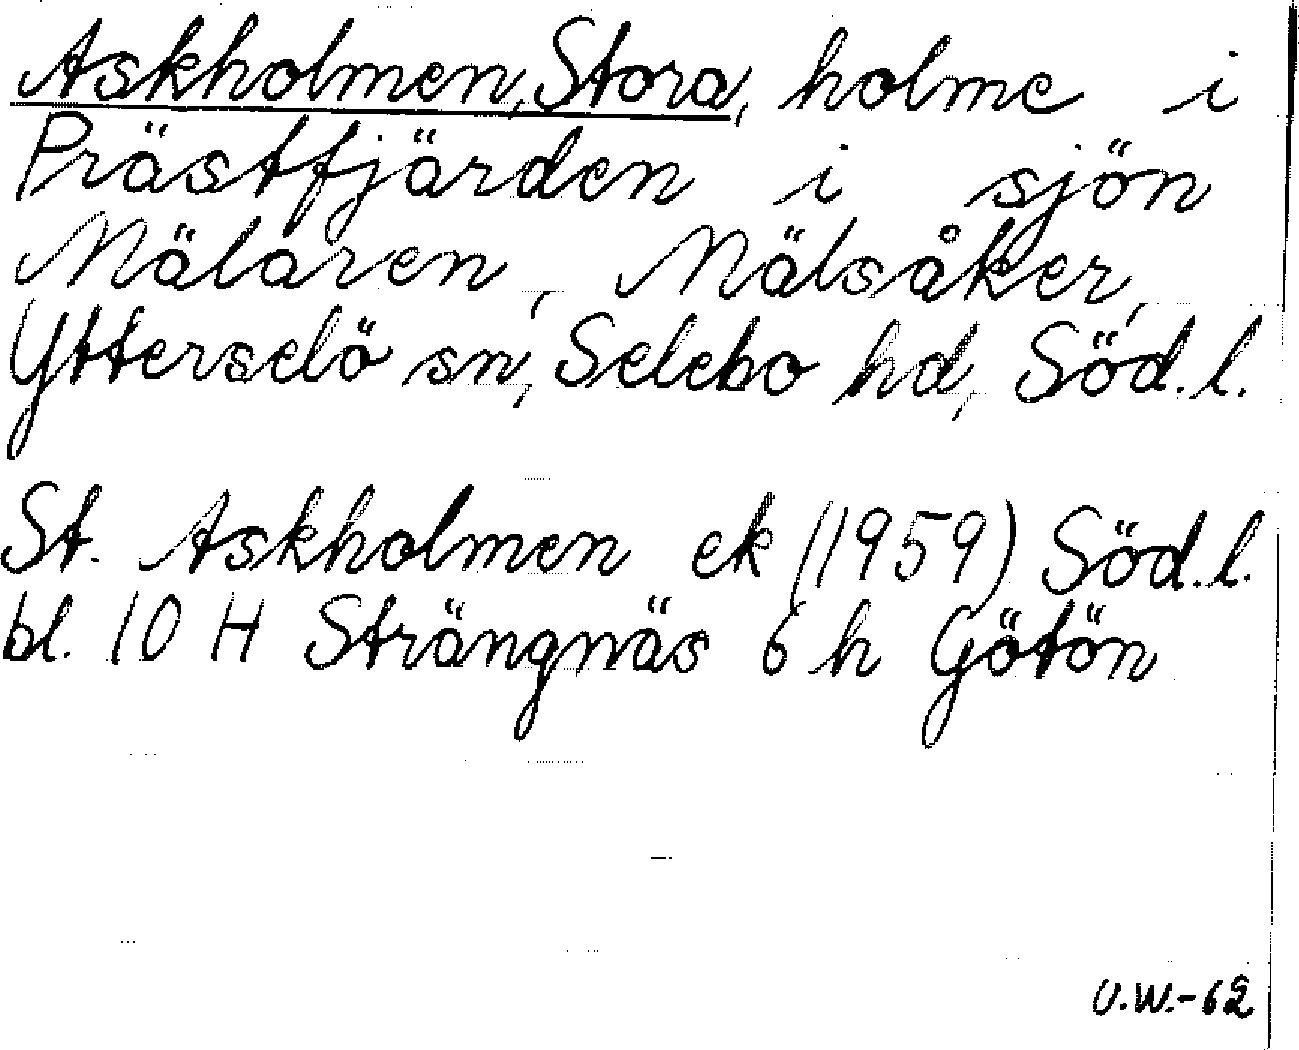 Askholmen, Stora, holme i
Prästfjärden i sjön
Mälaren, Mälsåker,
Ytterselö sn, Selebo hd, Söd. l.
St. Askholmen ek (1959) Söd. l.
bl. 10 H Strängnäs 6 h Götön
U.W.-62